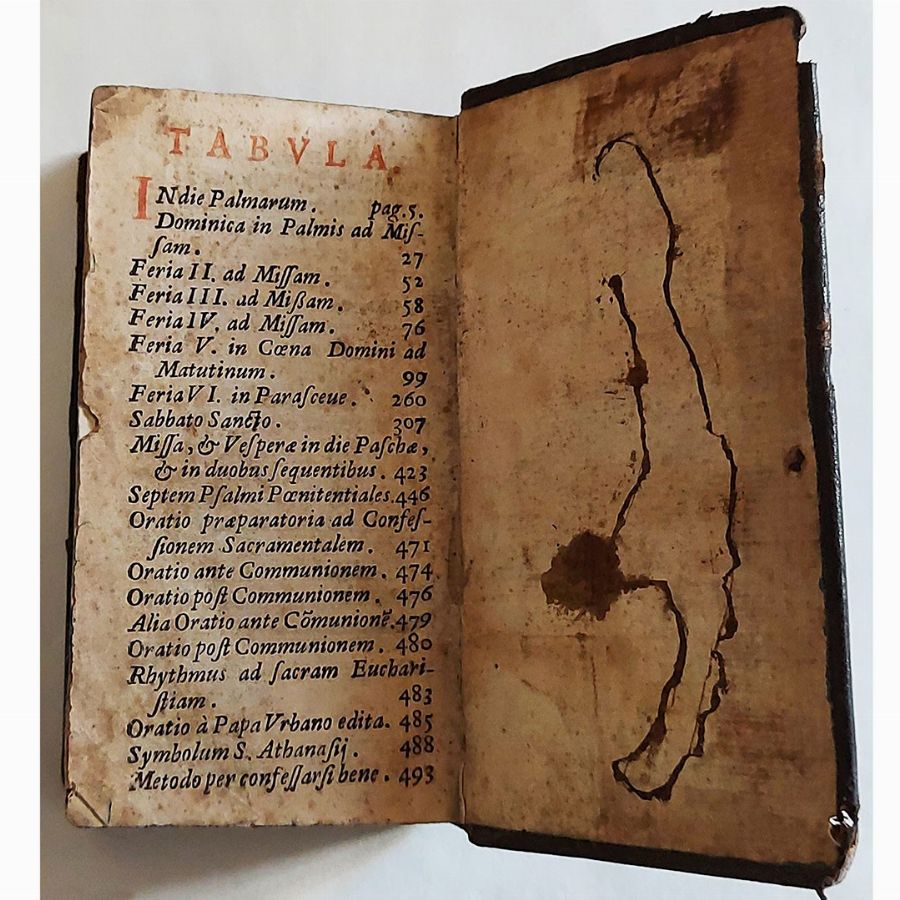 TABVLA.
INdie Palmarum. pag.5.
Dominica in Palmis ad Miſ-
ſam. 27
Feria II. ad Miſſam. 52
Feria III. ad Mißam. 58
Feria IV. ad Miſſam. 76
Feria V. in Cœna Domini ad
Matutinum. 99
Feria VI. in Paraſceue. 260
Sabbato Sancto. 307
Miſſa, & Veſperæ in die Paſchæ,
& in duobus ſequentibus. 423
Septem Pſalmi Pœnitentiales. 446
Oratio præparatoria ad Confeſ-
ſionem Sacramentalem. 471
Oratio ante Communionem. 474
Oratio poſt Communionem. 476
Alia Oratio ante Cõmunionẽ. 479
Oratio poſt Communionem. 480
Rhythmus ad ſacram Euchari-
ſtiam. 483
Oratio à Papa Vrbano edita. 485
Symbolum S. Athanaſij. 488
Metodo per confeſſarſi bene. 493